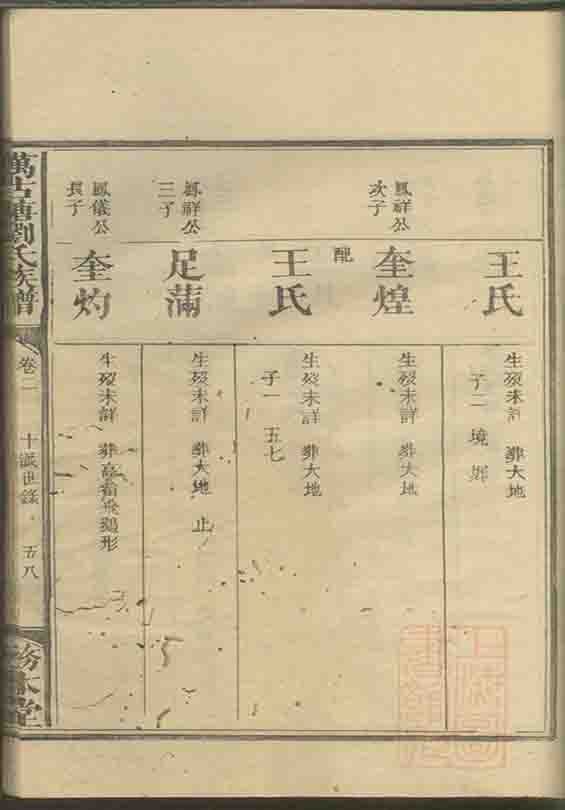 王氏
生歿未詳 葬大地
子二 境
鳳祥公
次子
奎煌
生歿未詳 葬大地
配
王氏
生歿未詳 葬大地
子一 五七
鳳祥公
三子
足滿
生歿未詳 葬大地 止
鳳儀公
長子
奎灼
生歿未詳 葬 形
萬古塘劉氏族譜
卷二
十 派世錄
五八
務本堂